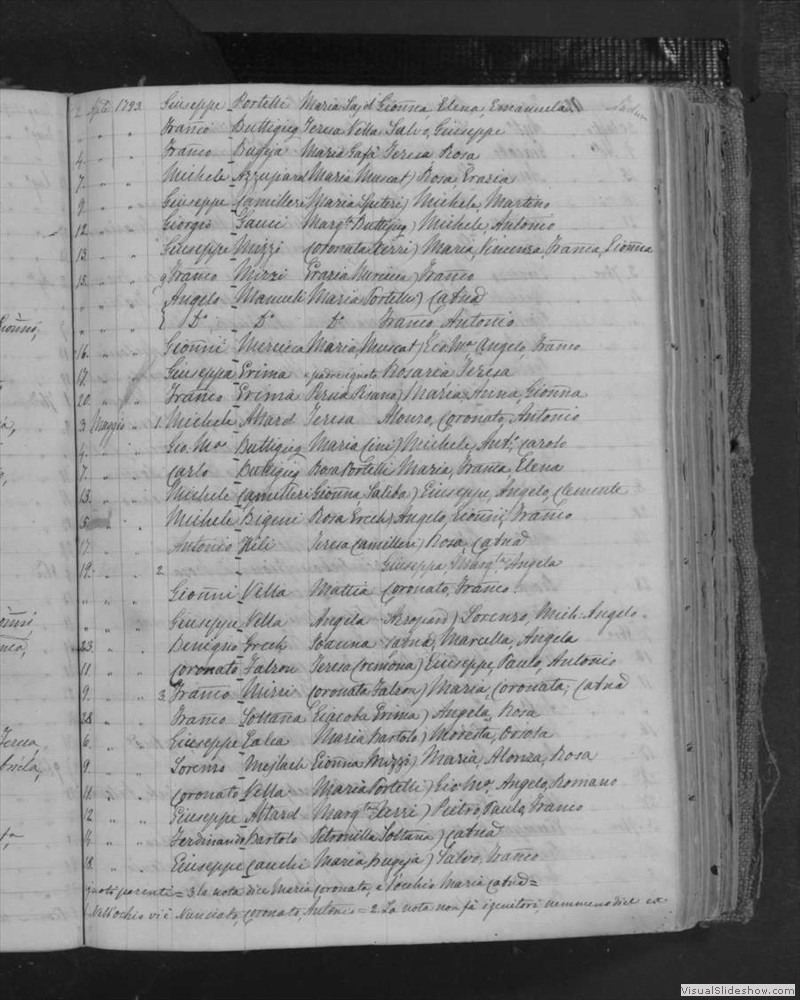 2 Aple 1793 Giuseppe Portelli Maria Gioñna, Elena, Emanuela
" " " Franco Buttigieg Teresa Vella Salvo, Giuseppe
4. " " Franco Bugeja Maria Gafà Teresa Rosa
7. " " Michele Azzupard Maria Muscat) Rosa, Grazia
9. " " Giuseppe Camilleri Maria Spiteri) Michele, Martino
12. " " Giorgio Gauci Margta Buttigieg) Michele, Antonio
13. " " Giuseppe Mizzi Coronata Ferri) Maria, Vincenza, Franca, Gioñna
15. " " Franco Mizzi Grazia Mercieca) Franco
" " " Angelo Manueli Maria Portelli) Catña
" " " Do Do Do Franco, Antonio
16. " " Gioñni Mercieca Maria Muscat) Gio Ma, Angelo, Franco
17. " " Giuseppa Grima padre ignoto Rosaria Teresa
20. " " Franco Grima Maria, Anna, Gioñna
3. Maggio " 1. Michele Attard Teresa Alonzo, Coronato, Antonio
4. " " Gio. Ma Buttigieg Maria Cini) Michele, Anto, Carolo
7. " " Carlo Buttigieg Rosa Portelli Maria, Franca Elena
13. " " Michele Camilleri Gioñna Saliba) Giuseppe, Angelo, Clemente
15 " " Michele Bigeni Rosa Grech) Angelo, Gioñni, Franco
17. " " Antonio Hili Teresa Camilleri) Rosa, Catña
19. " " 2. " " Giuseppa, Margta Angela
" " " Gioñni Vella Mattia Coronato, Franco.
" " " Giuseppe Vella Angela Azzopard) Lorenzo, Mich: Angelo
23. " " Benigno Grech Gioanna Catña, Marcella, Angela
11 " " Coronato Falzon Teresa Cremona) Giuseppe, Paulo, Antonio
9. " " 3. Franco Mizzi Coronata Falzon) Maria, Coronata, Catña
28. " " Franco Soltana Giacoba Grima) Angela, Rosa
6. " " Giuseppe Galea Maria Bartolo) Modesta, Orsola
9. " " Lorenzo Mejlach Gionna Mizzi) Maria, Alonza, Rosa
11. " " Coronato Vella Maria Portelli) Gio Ma, Angelo, Romano
12 " " Giuseppe Attard Margta Ferri) Pietro, Paulo, Franco
" " Ferdinando Bartolo Petronilla Soltana) Catña
18. " " Giuseppe Cauchi Maria Bugeja) Salvo, Franco
parenti = 3 la nota dice Maria Coronata, e l'occhio Maria Catña =
Nell'ochio vi è Nunciato, Coronato, Antonio = 2. La nota non fà i genitori, nemmeno dice
VisualSlideshow.com